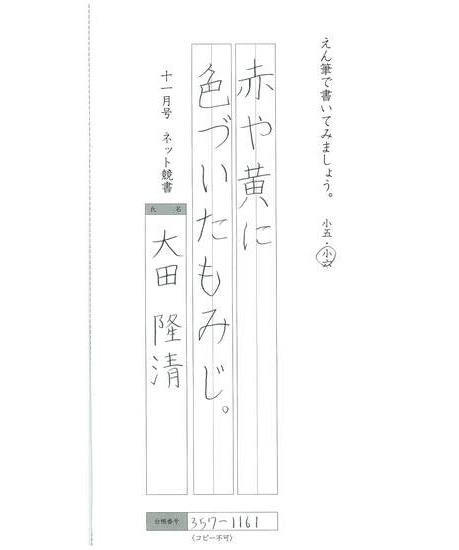 えん筆で書いてみましょう。 小五・小六
赤や黄に
色づいたもみじ。
十一月号 ネット競書
氏名
大田 隆清
台帳番号 357-1161
(コピー不可)